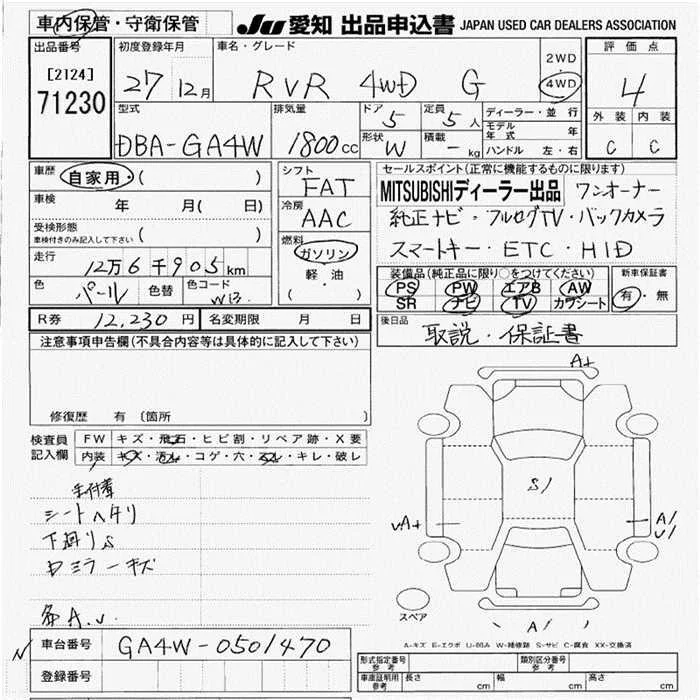 車内保管・守衛保管 JU 愛知 出品申込書 JAPAN USED CAR DEALERS ASSOCIATION
出品番号 初度登録年月 車名・グレード 評価点
[2124] 71230 27 12月 RVR 4WD G 2WD 4WD 4
型式 排気量 ドア 5 定員 5人 ディーラー・並行 外装 内装
DBA-GA4W 1800cc 形状 W 積載 -kg モデル年式 年 C C
ハンドル 左・右
車歴 自家用・( ) シフト FAT セールスポイント(正常に機能するものに限ります)
車検 年 月( 日) 冷房 AAC MITSUBISHIディーラー出品 ワンオーナー
受検形態 車検付きのみ記入して下さい ( ) 純正ナビ・フルセグTV・バックカメラ
燃料 ガソリン 軽・油 ( ) スマートキー・ETC・HID
走行 12万6千905km 装備品(純正品に限り○をつけてください) 新車保証書
色 パール 色替 色コード W13 PS PW エアB AW 有・無
SR ナビ TV カワシート
R券 12,230円 名変期限 月 日 後日品 取説・保証書
注意事項申告欄(不具合内容等は具体的に記入して下さい)
修復歴 有 〔箇所
検査員記入欄 FW キズ・飛石・ヒビ割・リペア跡・X要
内装 キズ・汚れ・コゲ・穴・スレ・キレ・破レ
シートヘタリ
下廻りS
ミラーキズ
各A.U.
A+
S/
A+
A/
A/
スペア
A-キズ E-エクボ U-凹み W-補修跡 S-サビ C-腐食 XX-交換済
N 車台番号 GA4W-0501470
登録番号
形式指定番号 参考 類別区分番号 参考
車庫証明用 参考 長さ cm 幅 cm 高さ cm